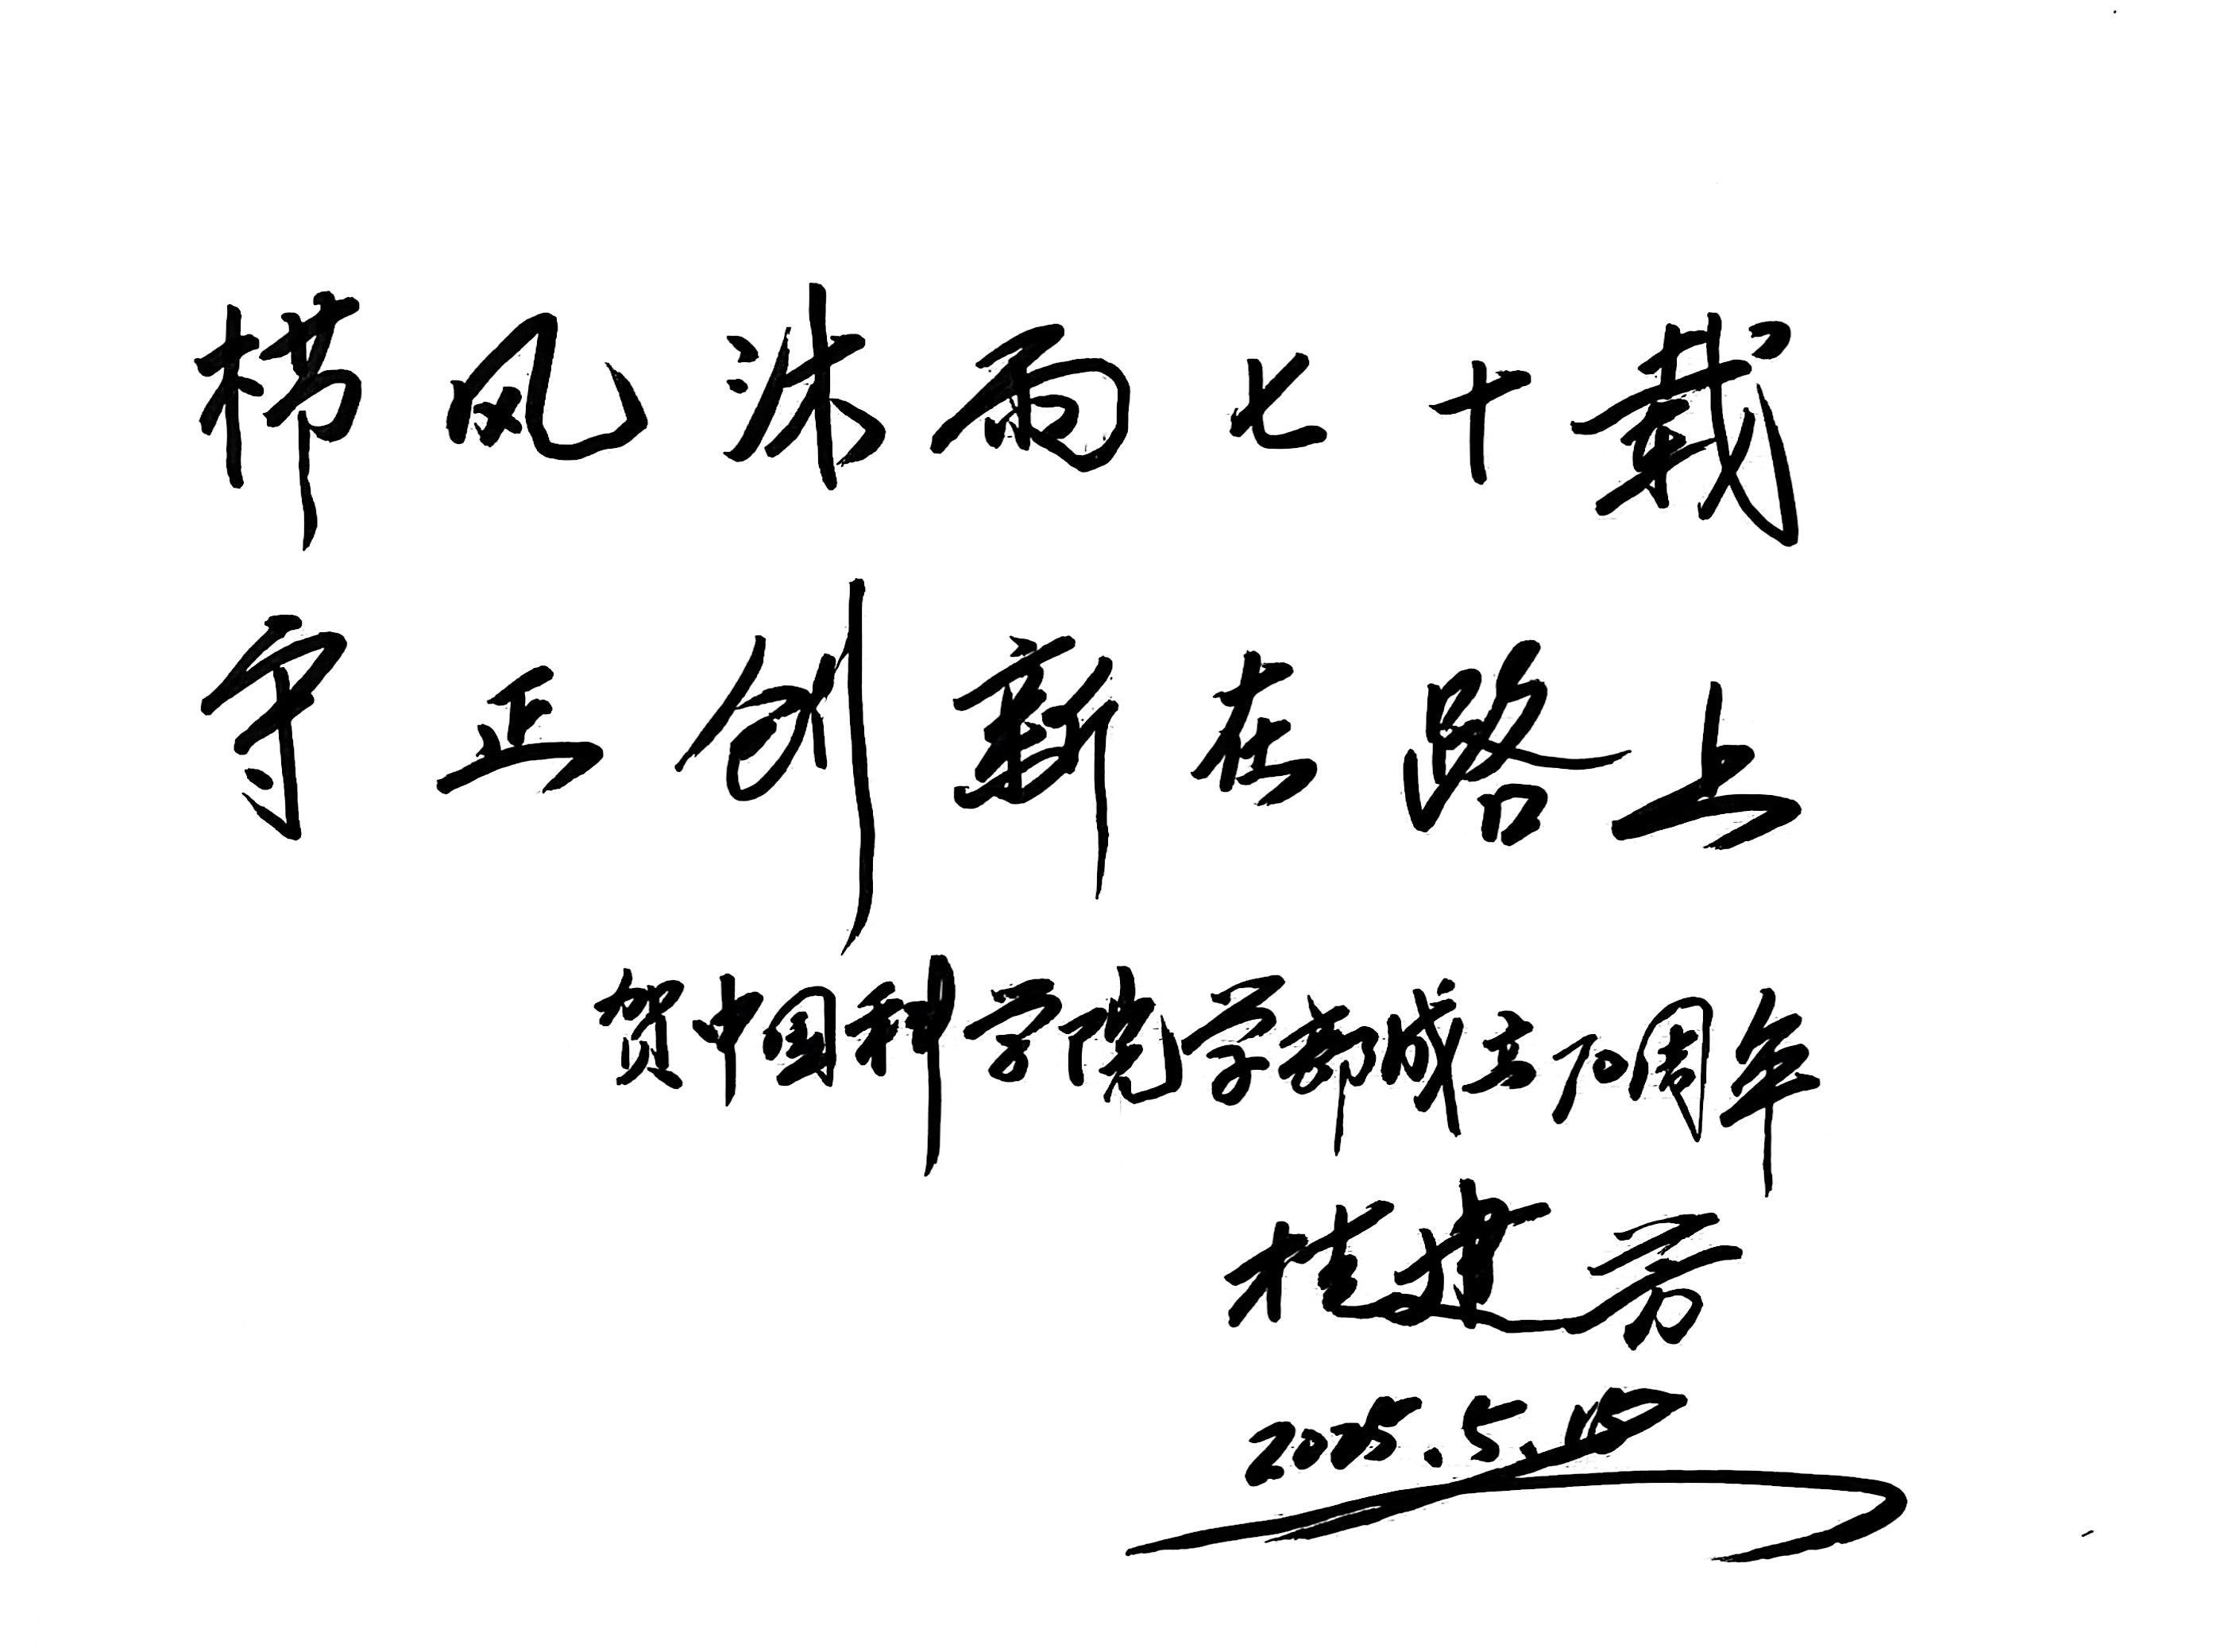 栉风沐雨七十载
守正创新在路上
贺中国科学院学部成立70周年
桂建芳
2025.5.